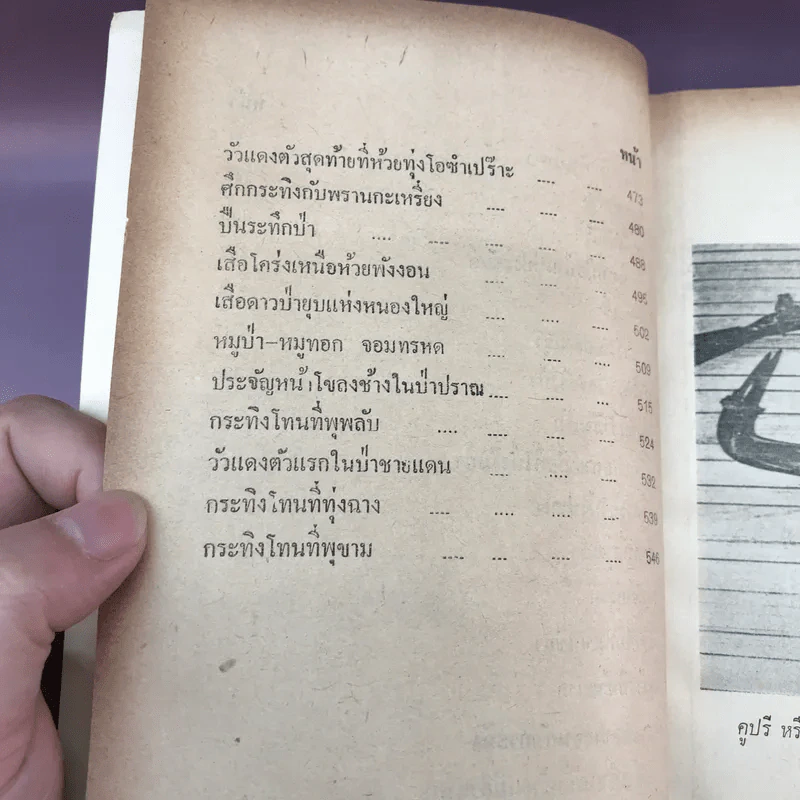 หน้า
วัวแดงตัวสุดท้ายที่ห้วยทุ่งโอซำเปร๊าะ .... .... 473
ศึกกระทิงกับพรานกะเหรี่ยง .... .... .... 480
ปืนระทึกป่า .... .... .... .... .... 488
เสือโคร่งเหนือห้วยพังงอน .... .... .... 495
เสือดาวป่ายุบแห่งหนองใหญ่ .... .... .... 502
หมูป่า-หมูทอก จอมทรหด .... .... .... 509
ประจัญหน้าโขลงช้างในป่าปราณ .... .... .... 515
กระทิงโทนที่พุพลับ .... .... .... .... 524
วัวแดงตัวแรกในป่าชายแดน .... .... .... 532
กระทิงโทนที่ทุ่งฉาง .... .... .... .... 539
กระทิงโทนที่พุขาม .... .... .... .... 546
คูปรี หรื